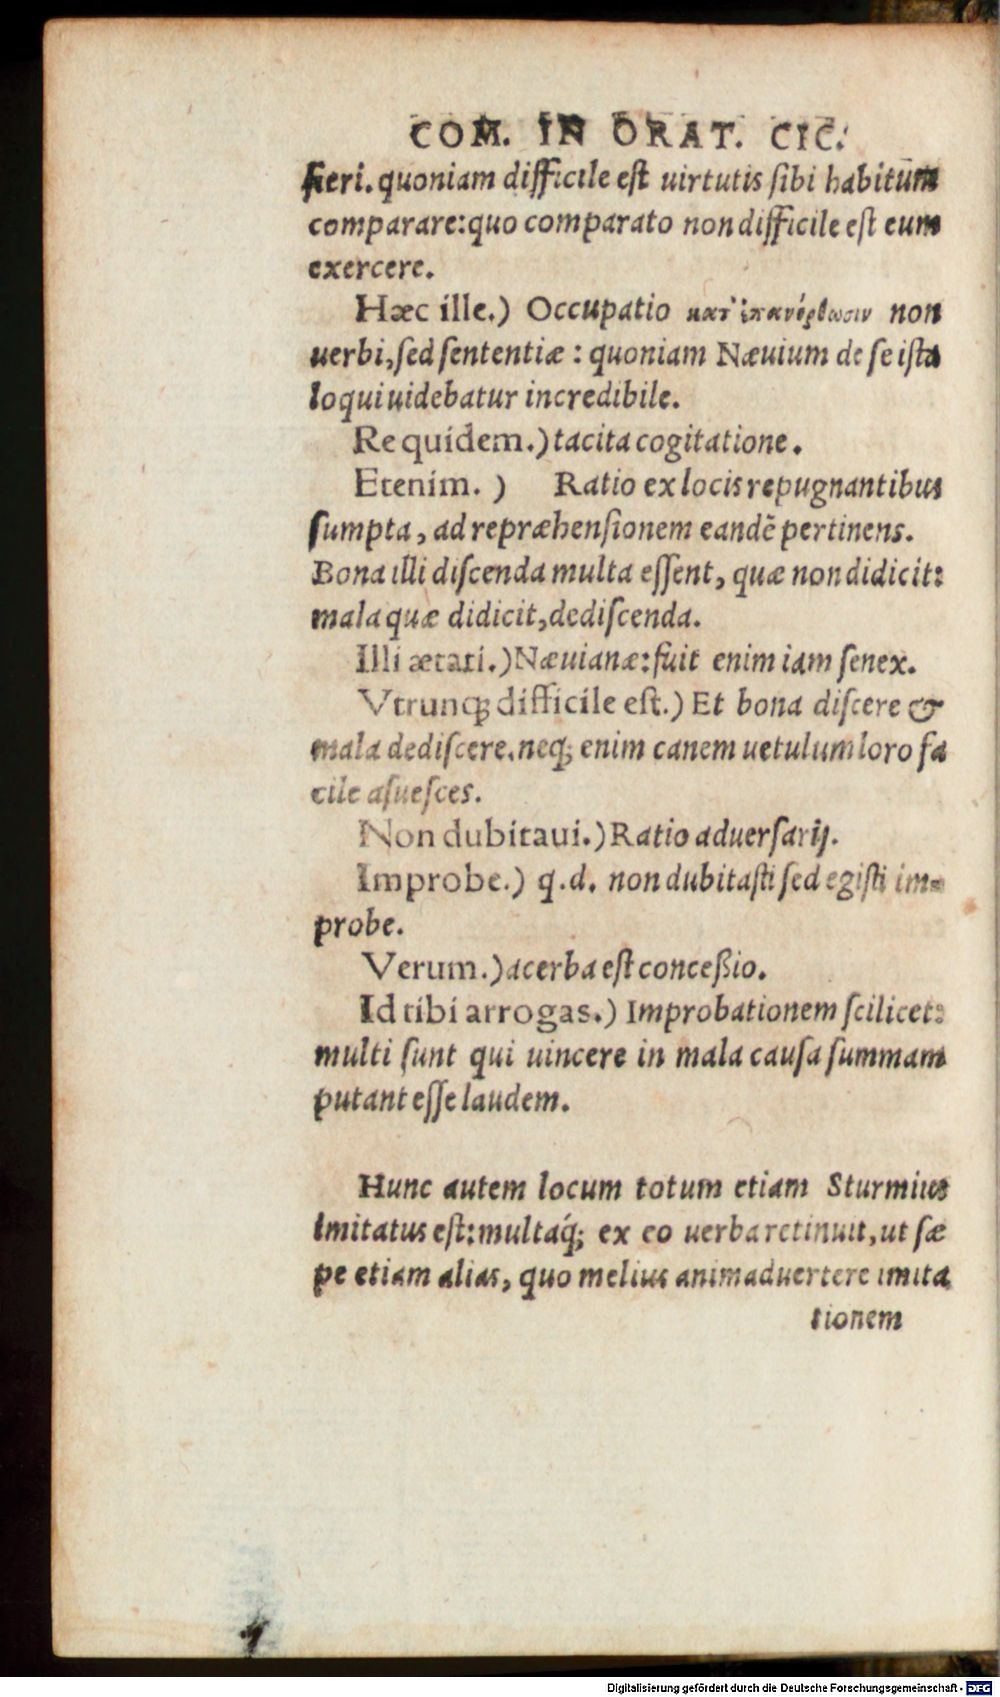 COM. IN ORAT. CIC.
fieri. quoniam difficile eſt uirtutis ſibi habitum
comparare: quo comparato non difficile eſt eum
exercere.
Hæc ille.) Occupatio κατ' ἐπανόρθωσιν non
uerbi, ſed ſententiæ: quoniam Næuium de ſe iſta
loqui uidebatur incredibile.
Re quidem.) tacita cogitatione.
Etenim.) Ratio ex locis repugnantibus
ſumpta, ad repræhenſionem eandē pertinens.
Bona illi diſcenda multa eſſent, quæ non didicit:
mala quæ didicit, dediſcenda.
Illi ætati.) Næuianæ: fuit enim iam ſenex.
Vtrunq; difficile eſt.) Et bona diſcere &
mala dediſcere. neq; enim canem uetulum loro fa
cile aſueſces.
Non dubitaui.) Ratio aduerſarij.
Improbe.) q.d. non dubitaſti ſed egiſti im-
probe.
Verum.) acerba eſt conceßio.
Id tibi arrogas.) Improbationem ſcilicet:
multi ſunt qui uincere in mala cauſa ſummam
putant eſſe laudem.
Hunc autem locum totum etiam Sturmius
imitatus eſt: multaq́; ex eo uerba retinuit, ut ſæ
pe etiam alias, quo melius animaduertere imita
tionem
Digitalisierung gefördert durch die Deutsche Forschungsgemeinschaft - DFG